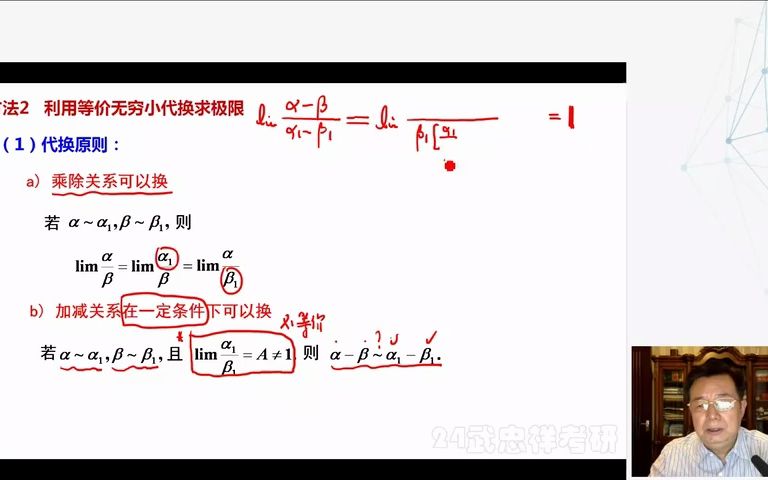 方法2 利用等价无穷小代换求极限
lim (α-β)/(α₁-β₁) = lim ——/(β₁[α₁/ = 1
（1）代换原则：
a) 乘除关系可以换
若 α ~ α₁, β ~ β₁, 则
lim α/β = lim α₁/β = lim α/β₁
b) 加减关系在一定条件下可以换
不等价
若 α ~ α₁, β ~ β₁, 且 lim α₁/β₁ = A ≠ 1. 则 α - β ~ α₁ - β₁.
?
24武忠祥考研